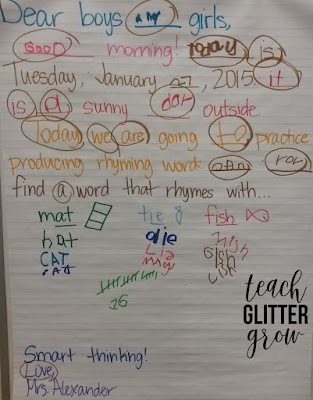 Dear boys and girls,
GOOD morning! Today is
Tuesday, January 27, 2015. it
is a sunny outside
Today we are going to practice
producing rhyming words
find a word that rhymes with...
mat tie fish
die
CAT
16
Smart thinking!
Love,
Mrs. Alexander
teach
GLITTER
grow